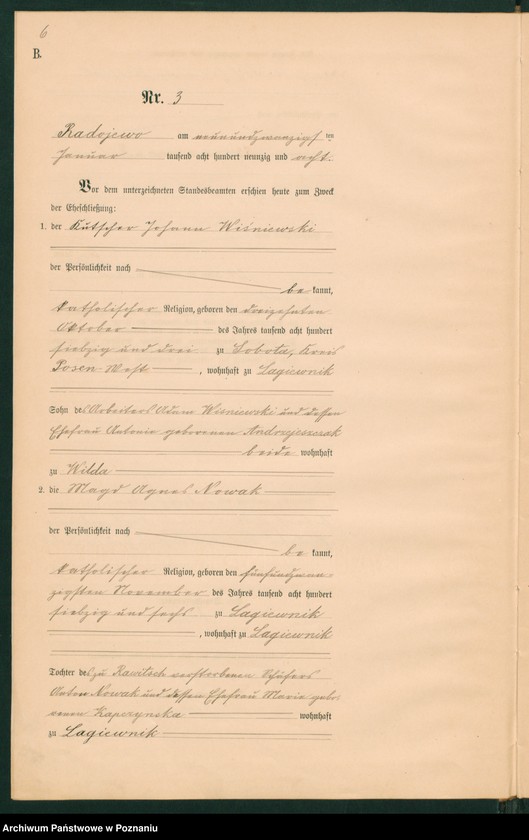 6
B.
Nr. 3
Radojewo am neunundzwanzigsten
Januar tausend acht hundert neunzig und acht
Vor dem unterzeichneten Standesbeamten erschien heute zum Zweck
der Eheschließung:
1. der Kutscher Johann Wiśniewski
der Persönlichkeit nach
be kannt,
katholischer Religion, geboren den dreizehnten
Oktober des Jahres tausend acht hundert
siebzig und drei zu Sobota, Kreis
Posen West, wohnhaft zu Lagiewnik
Sohn des Arbeiters Adam Wiśniewski und dessen
Ehefrau Antonie geborenen Andrzejeszczak
beide wohnhaft
zu Wilda
2. die Magd Agnes Nowak
der Persönlichkeit nach
be kannt,
katholischer Religion, geboren den fünfundzwan-
zigsten November des Jahres tausend acht hundert
siebzig und sechs zu Lagiewnik
, wohnhaft zu Lagiewnik
Tochter des zu Rawitsch verstorbenen Schäfers
Anton Nowak und dessen Ehefrau Marie gebo-
renen Kapczynska wohnhaft
zu Lagiewnik
Archiwum Państwowe w Poznaniu